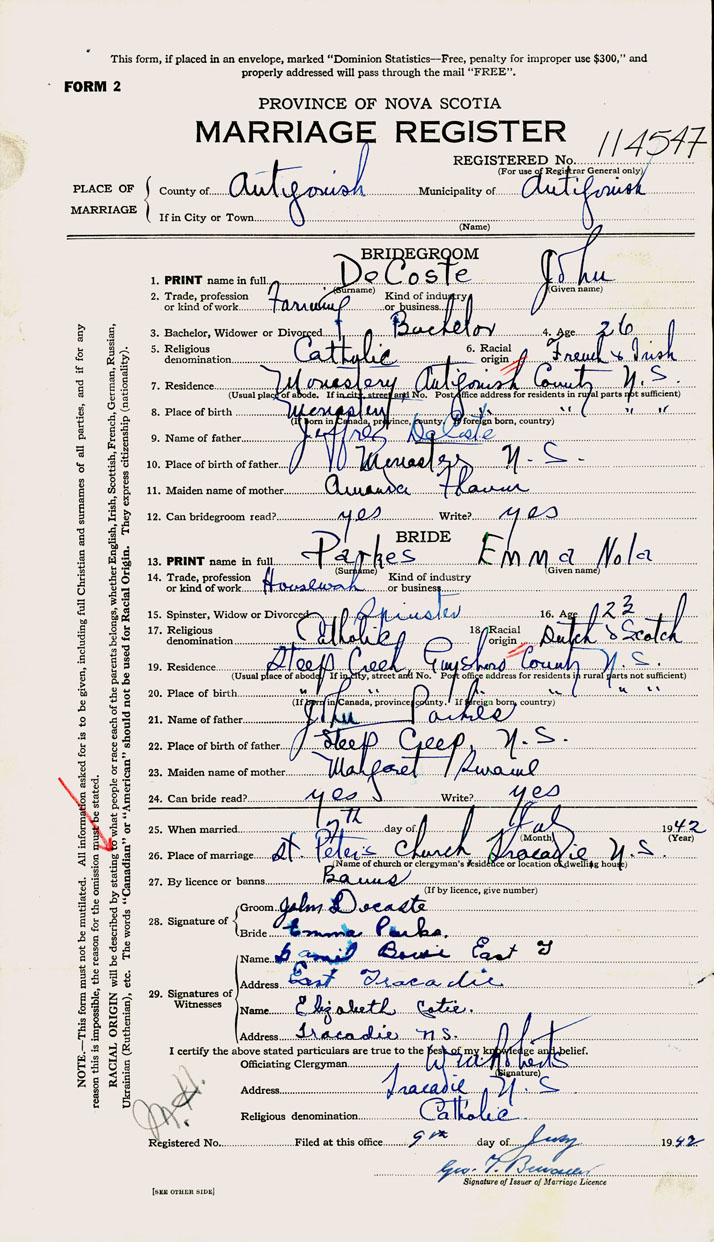 This form, if placed in an envelope, marked "Dominion Statistics—Free, penalty for improper use $300," and
properly addressed will pass through the mail "FREE".
FORM 2
PROVINCE OF NOVA SCOTIA
MARRIAGE REGISTER
REGISTERED No. 114547
(For use of Registrar General only)
PLACE OF MARRIAGE
County of Antigonish Municipality of Antigonish
If in City or Town
(Name)
BRIDEGROOM
1. PRINT name in full DeCoste John
(Surname) (Given name)
2. Trade, profession or kind of work Farming Kind of industry or business
3. Bachelor, Widower or Divorced Bachelor 4. Age 26
5. Religious denomination Catholic 6. Racial origin French & Irish
7. Residence Monastery Antigonish County N.S.
(Usual place of abode. If in city, street and No. Post office address for residents in rural parts not sufficient)
8. Place of birth Monastery " " "
(If born in Canada, province, county. If foreign born, country)
9. Name of father Jeffrey DeCoste
10. Place of birth of father Monastery N.S.
11. Maiden name of mother Amanda
12. Can bridegroom read? yes Write? yes
BRIDE
13. PRINT name in full Parkes Emma Nola
(Surname) (Given name)
14. Trade, profession or kind of work Kind of industry or business
15. Spinster, Widow or Divorced Spinster 16. Age 23
17. Religious denomination Catholic 18. Racial origin Dutch & Scotch
19. Residence Steep Creek, Guysboro County N.S.
(Usual place of abode. If in city, street and No. Post office address for residents in rural parts not sufficient)
20. Place of birth " " " " "
(If born in Canada, province, county. If foreign born, country)
21. Name of father John Parkes
22. Place of birth of father Steep Creep, N.S.
23. Maiden name of mother Margaret
24. Can bride read? yes Write? yes
25. When married 7th day of July 1942
(Month) (Year)
26. Place of marriage St. Peter's Church Tracadie N.S.
(Name of church or clergyman's residence or location of dwelling house)
27. By licence or banns Banns
(If by licence, give number)
28. Signature of
Groom John Decoste
Bride Emma Parks.
29. Signatures of Witnesses
Name East T
Address East Tracadie
Name Elizabeth
Address Tracadie NS.
I certify the above stated particulars are true to the best of my knowledge and belief.
Officiating Clergyman Roberts
(Signature)
Address Tracadie N.S
Religious denomination Catholic
Registered No. Filed at this office 9th day of July 1942
Geo.
Signature of Issuer of Marriage Licence
[SEE OTHER SIDE]
NOTE.—This form must not be mutilated. All information asked for is to be given, including full Christian and surnames of all parties, and if for any
reason this is impossible, the reason for the omission must be stated.
RACIAL ORIGIN will be described by stating to what people or race each of the parents belongs, whether English, Irish, Scottish, French, German, Russian,
Ukrainian (Ruthenian), etc. The words "Canadian" or "American" should not be used for Racial Origin. They express citizenship (nationality).